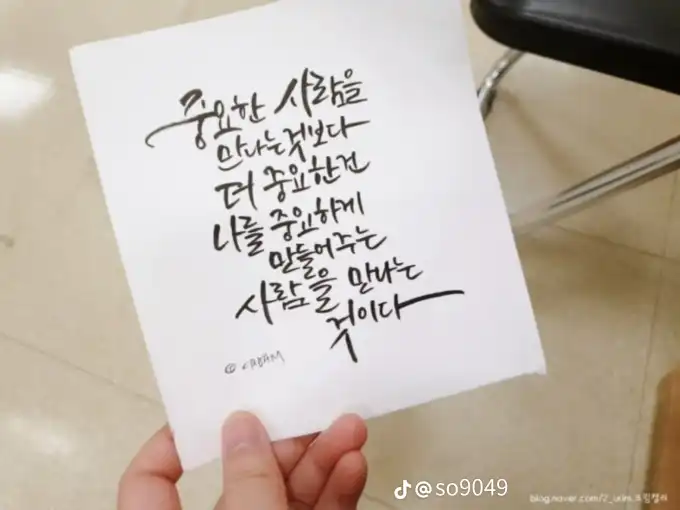 중요한 사람을
만나는것보다
더 중요한건
나를 중요하게
만들어주는
사람을 만나는
것이다
@so9049